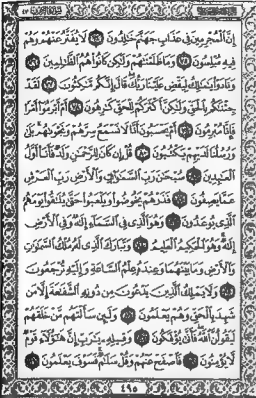 إن المجرمين في عذاب جهنم خالدون ٧٤ لا يفتر عنهم وهم
فيه مبلسون ٧٥ وما ظلمناهم ولكن كانوا هم الظالمين ٧٦
ونادوا يا مالك ليقض علينا ربك قال إنكم ماكثون ٧٧ لقد
جئناكم بالحق ولكن أكثركم للحق كارهون ٧٨ أم أبرموا أمرا
فإنا مبرمون ٧٩ أم يحسبون أنا لا نسمع سرهم ونجواهم بلى
ورسلنا لديهم يكتبون ٨٠ قل إن كان للرحمن ولد فأنا أول
العابدين ٨١ سبحان رب السماوات والأرض رب العرش
عما يصفون ٨٢ فذرهم يخوضوا ويلعبوا حتى يلاقوا يومهم
الذي يوعدون ٨٣ وهو الذي في السماء إله وفي الأرض
إله وهو الحكيم العليم ٨٤ وتبارك الذي له ملك السماوات
والأرض وما بينهما وعنده علم الساعة وإليه ترجعون
٨٥ ولا يملك الذين يدعون من دونه الشفاعة إلا من
شهد بالحق وهم يعلمون ٨٦ ولئن سألتهم من خلقهم
ليقولن الله فأنى يؤفكون ٨٧ وقيله يا رب إن هؤلاء قوم
لا يؤمنون ٨٨ فاصفح عنهم وقل سلام فسوف يعلمون ٨٩
٤٩٥